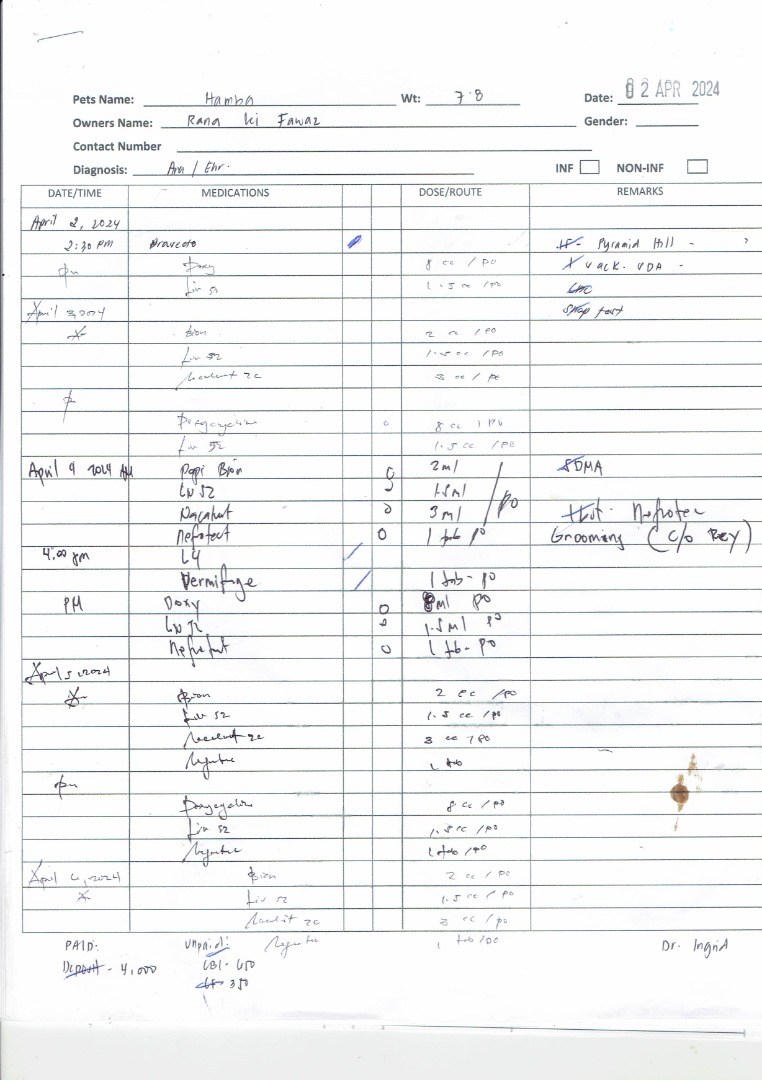 Pets Name: Hamba Wt: 7.8 Date: 02 APR 2024
Owners Name: Rana ki Fawaz Gender:
Contact Number
Diagnosis: Ana / Ehr. INF NON-INF
DATE/TIME MEDICATIONS DOSE/ROUTE REMARKS
April 2, 2024
2:30 PM Bravecto Pyramid Hill -
pm Doxy 8 cc / po VDA -
Liv 52 1.5 cc / po CBC
April 3, 2024 test
Bion 2 cc / po
Liv 52 1.5 cc / po
3 cc / po
p
Doxycycline 8 cc / po
Liv 52 1.5 cc / po
April 4 2024 AM Papi Bion 2ml SDMA
LIV 52 1.5ml
Nacalvit 3 ml / po Nefrotec
Nefrotect 1 tab po Grooming (c/o Bey)
4:00 pm L4
Vermifuge 1 tab - po
PM Doxy 8ml po
LIV 52 1.5ml po
Nefrotect 1 tab - po
April 5, 2024
Bion 2 cc / po
Liv 52 1.5 cc / po
3 cc / po
1 tab
pm
Doxycycline 8 cc / po
Liv 52 1.5 cc / po
1 tab / po
April 6, 2024 Bion 2 cc / po
Liv 52 1.5 cc / po
3 cc / po
PAID: Unpaid: 1 tab / po Dr. Ingrid
Deposit - 4,000 CBC - 650
350